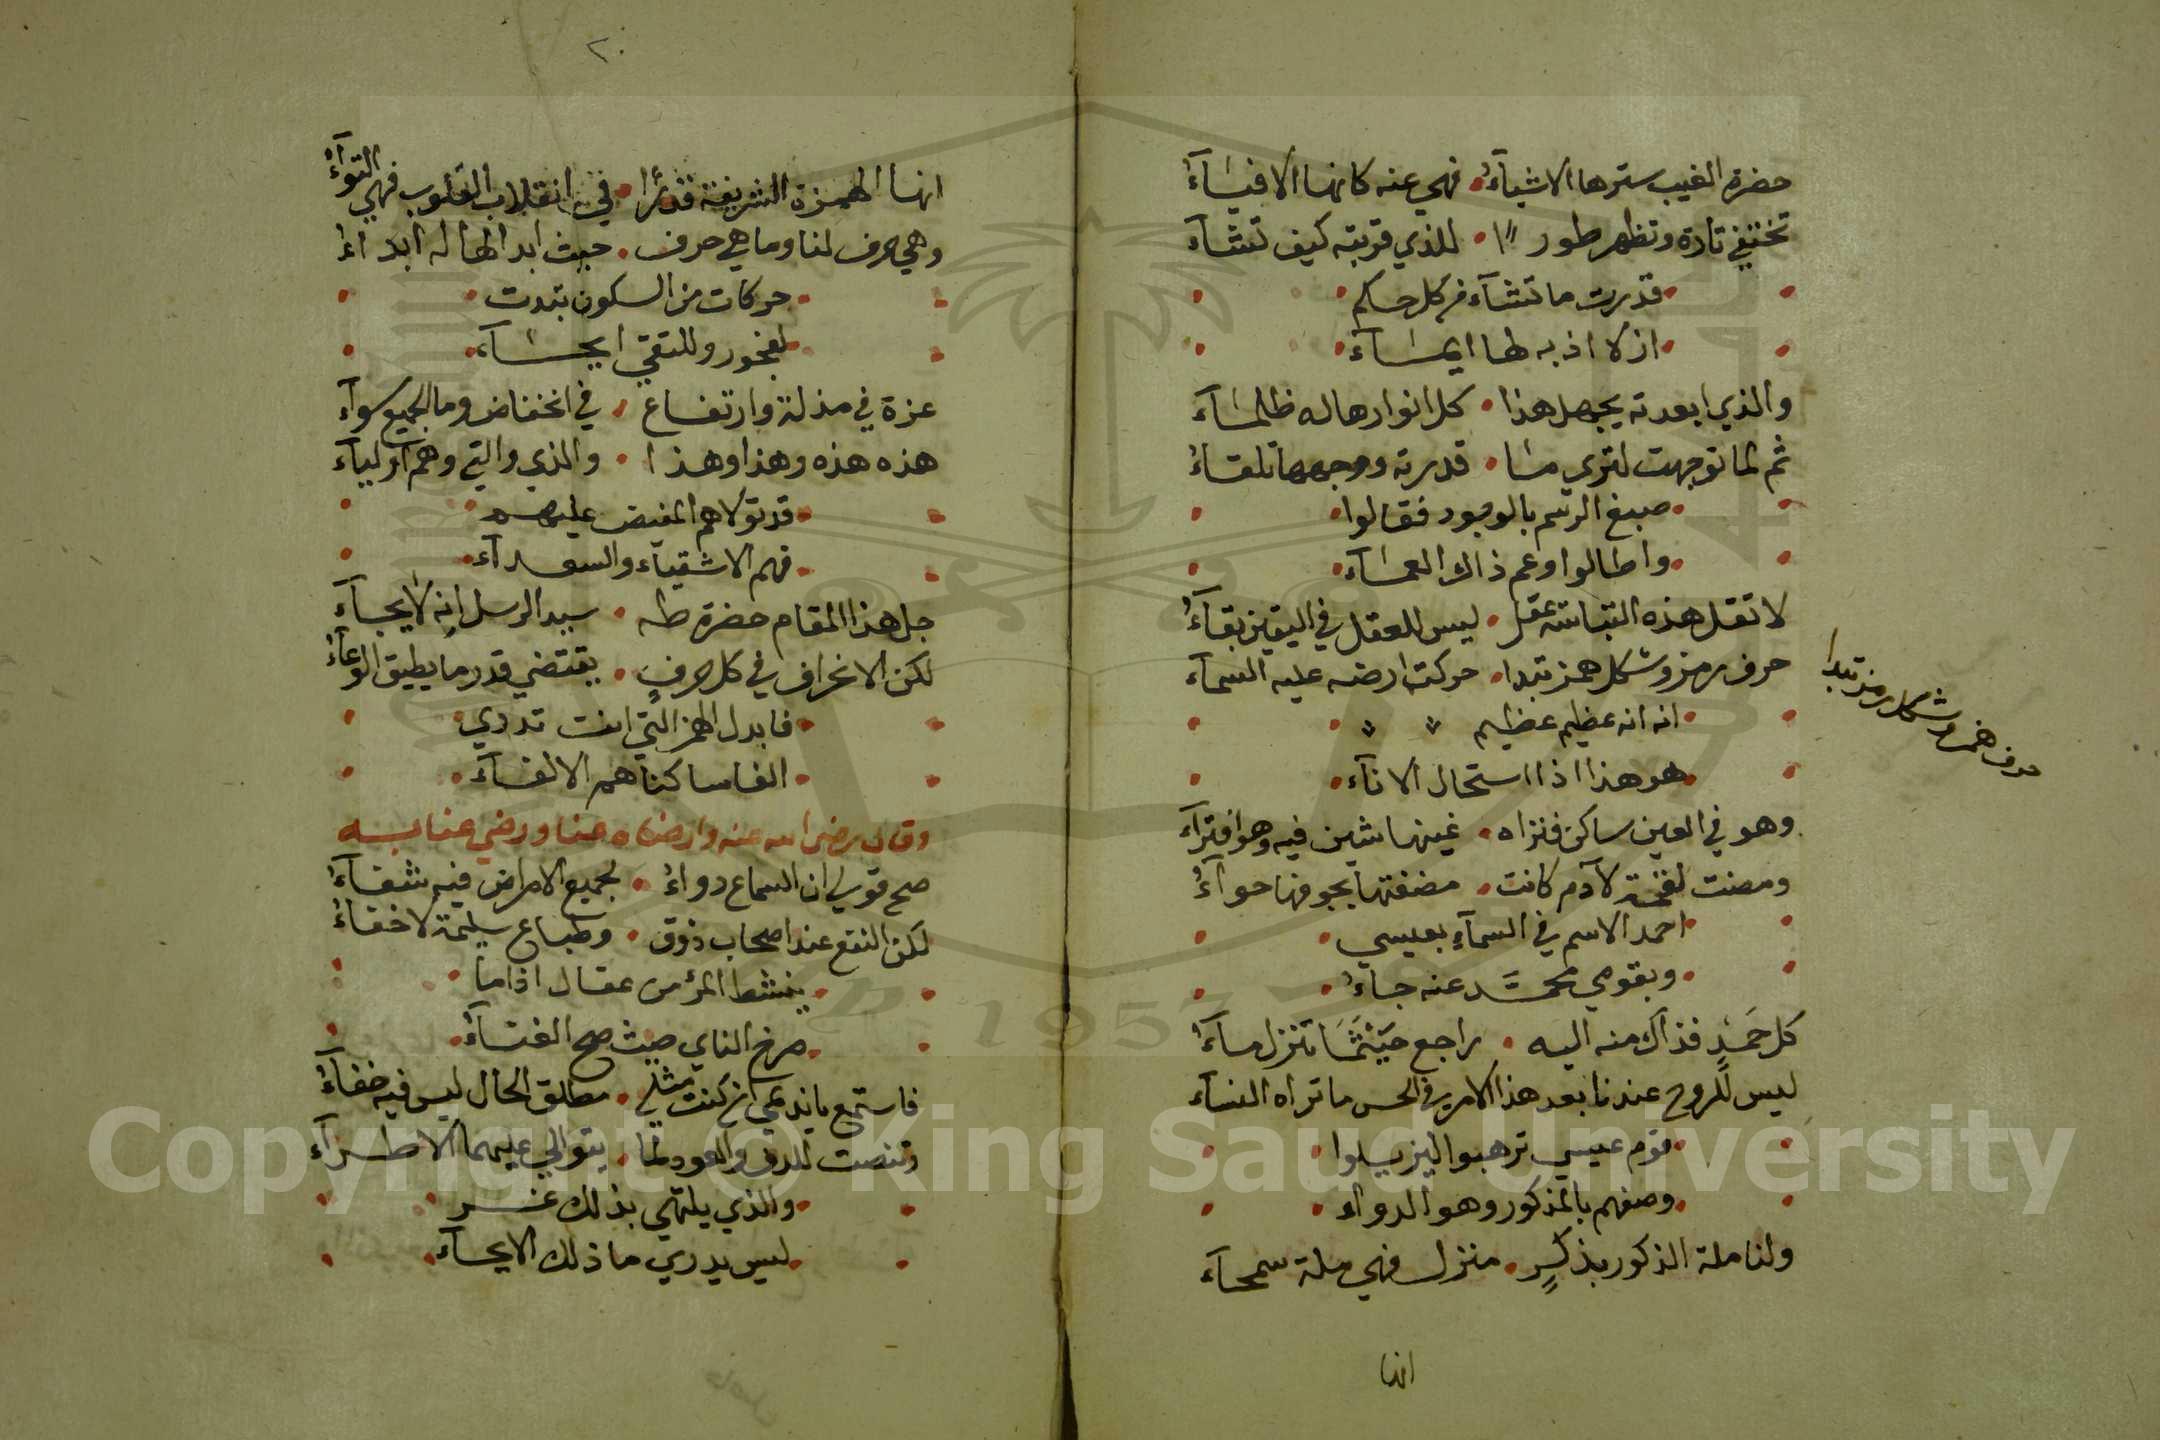 حضرة الغيب سترها الاشيآءُ • فهي عنه كانها الافيآءُ
تختفي تارة وتظهر طورا • للذي قربته كيف تشآء
• قدرت ما تشآء من كل حكم •
• ازلا اذ به لها ايمآء •
والذي ابعدته يجهل هذا • كل انوارها له ظلمآء
ثم لما توجهت لترى ما • قدرته ووجهها تلقاءُ
• صبغ الرسم بالوجود فقالوا •
• واطالوا وعم ذاك العمآء •
لا تقل هذه التباسة عقل • ليس للعقل في اليقين بقآءُ
حرف رمز وشكل همز تبدا • حركت ارضه عليه السمآء
حرف همز وشكل رمز تبدا
• انه انه عظيم عظيم •
• هو هذا اذا استحال الانآء •
وهو في العين ساكن فنراه • غينها شين فيه وهو افترآء
ومضت نفخة لآدم كانت • مضغتها بجوفها حوآءُ
• احمد الاسم في السمآء بعيسي •
• وبقومي محمّد عنه جاءُ •
كل حَمْدٍ فذاك منه اليه • راجع حَيْثُمَا تنزل مآءُ
ليس للروح عندنا بعد هذا الامر في الحس ما تراه النسآء
• قوم عيسي ترهبوا ليزيلوا •
• وصفهم بالمذكور وهو الدواء •
ولنا ملة الذكور بذكرٍ • منزل فهي ملة سمحآء
انها
٢٠
انها الهمزة الشريفة قدرا • في انقلاب القلوب فهي التوآءُ
وهي حرف لنا وما هي حرف • حيث ابدالها له ابداءُ
• حركات من السكون بتدت •
• لفجور وللتقي ايحآء •
عزة في مذلة وارتفاع • في انخفاض وما الجميع سوآء
هذه هذه وهذا وهذا • والذي والتي وهم اوليآء
• قد تولاهم المفيض عليهم •
• فهم الاشقيآء والسعدآء •
جل هذا المقام حضرة طه • سيد الرسل انه لايجآء
لكن الانحراف في كل حرفٍ • يقتضي قدر ما يطيق الوعآءُ
• فابدل الهمز التي انت تدري •
• الفا ساكنا هم الالفآء •
وقال رضي الله عنه وارضاه عنا ورضي عنا به
صح قولي ان السماع دواءُ • لجميع الامراض فيه شفآءُ
لكن النفع عند اصحاب ذوق • وطباع سليمة لاخفاءُ
• ينشط المرء من عقال اذا ما •
• صرخ الناي حيث صح الغنآءُ •
فاستمع يا نديمي ان كنت مثلي • مطلق الحال ليس فيه خفآءُ
وتنصت للدف والعود لما • يتوالي عليهما الاطرآء
• والذي يلتهي بذلك غر •
• ليس يدري ما ذلك الايحآء •
Copyright © King Saud University
1957